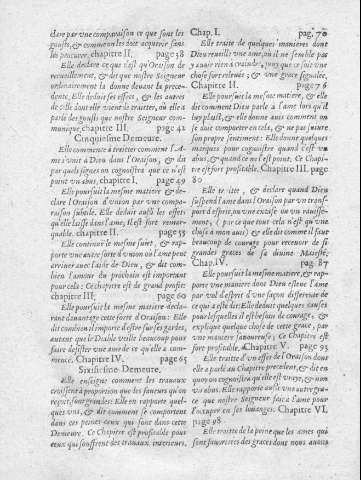 clare par une comparaison ce que sont les
gousts, & comme on les doit acquerir sans
les procurer, chapitre II. page 38
Elle declare ce que c'est qu'Oraison de
recueillement, & dit que nostre Seigneur
ordinairement la donne devant la prece-
dente, Elle deduit ses effects, & les autres
de celle dont elle vient de traitter, où elle a
parlé des gousts que nostre Seigneur com-
munique, chapitre III, page 42
Cinquiesme Demeure.
Elle commence à traitter comment l'A-
me s'unit à Dieu dans l'Oraison, & dit
par quels signes on cognoistra que ce n'est
point un abus, chapitre I, page 49
Elle poursuit la mesme matiere & de-
clare l'Oraison d'union par une compa-
raison subtile. Elle deduit aussi les effets
qu'elle laisse dans l'ame, Il est fort remar-
quable. chapitre II. page 55
Elle continuë le mesme sujet, & rap-
porte une autre sorte d'union où l'ame peut
arriver avec l'aide de Dieu, & dit com-
bien l'amour du prochain est important
pour cela: Ce chapitre est de grand profit.
chapitre III; page 60
Elle poursuit la mesme matiere decla-
rant davantage cette sorte d'Oraison: Elle
dit combien il importe d'estre sur ses gardes,
autant que le Diable veille beaucoup pour
faire desister une ame de ce qu'elle a com-
mencé. Chapitre IV. page 65
Sixiesme Demeure.
Elle enseigne comment les travaux
croissent à proportion que les faveurs qu'on
reçoit, sont grandes: Elle en rapporte quel-
ques uns, & dit comment se comportent
dans ces peines ceux qui sont dans cette
Demeure. Ce Chapitre est profitable pour
ceux qui souffrent des travaux interieurs,
Chap. I. pag, 70
Elle traite de quelques manieres dont
Dieu reveille une ame, où il ne semble pas
y avoir rien à craindre, jaçoy que ce soit une
chose fort relevée; & une grace signalée,
Chapitre II. page 76
Elle poursuit la mesme matiere, & elle
dit comment Dieu parle à l'ame lors qu'il
luy plaist, & elle donne avis comment on
se doit comporter en cela, & ne pas suivre
son propre sentiment: Elle donne quelques
marques pour cognoistre quand c'est un
abus, & quand ce ne l'est point, Ce Chapi-
tre est fort profitable. Chapitre III. page
80
Elle traitte, & declare quand Dieu
suspend l'ame dans l'Oraison par un trans-
port d'esprit, ou une extase ou un ravisse-
ment, (par ce que tout cela n'est qu'une
chose à mon avis) & dit comment il faut
beaucoup de courage pour recevoir de si
grandes graces de sa divine Majesté,
Chap. IV. pag. 87
Elle poursuit la mesme matiere, & rap-
porte une maniere dont Dieu esleve l'ame
par vol d'esprit d'une façon differente de
ce que a esté dit: Elle deduit quelques causes
pour lesquelles il est besoin de courage, &
explique quelque chose de cette grace, par
une maniere savoureuse; Ce Chapitre est
fort profitable, Chapitre V. page 93
Elle traitte d'un effet de l'Oraison dont
elle a parlé au Chapitre precedent, & dit en
quoy on cognoistra qu'elle est vraye, & non
un abus. Elle rapporte aussi une autre gra-
ce que nostre Seigneur fait à l'ame pour
l'occuper en ses loüanges. Chapitre VI,
page 98
Elle traitte de la peine que les ames qui
sont favorisées des graces dont nous avons